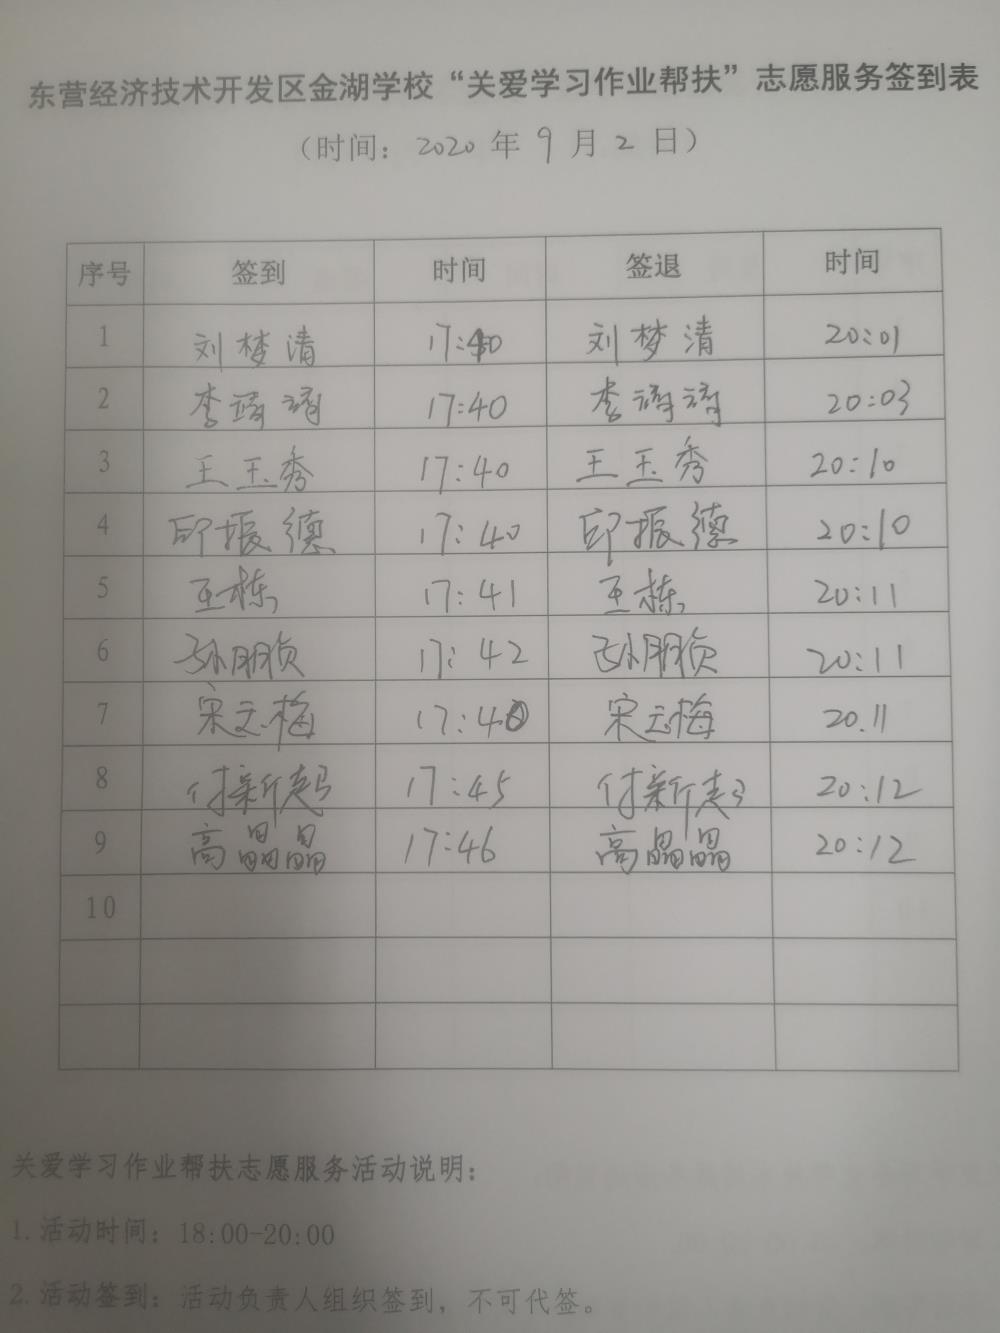 东营经济技术开发区金湖学校“关爱学习作业帮扶”志愿服务签到表
（时间：2020 年 9 月 2 日）
序号 签到 时间 签退 时间
1 刘梦清 17:40 刘梦清 20:01
2 李 17:40 李 20:03
3 王玉秀 17:40 王玉秀 20:10
4 印振德 17:40 印振德 20:10
5 王栋 17:41 王栋 20:11
6 孙朋贞 17:42 孙朋贞 20:11
7 宋玉梅 17:40 宋玉梅 20.11
8 付新起 17:45 付新起 20:12
9 高晶晶 17:46 高晶晶 20:12
10
关爱学习作业帮扶志愿服务活动说明：
1.活动时间：18:00-20:00
2.活动签到：活动负责人组织签到，不可代签。